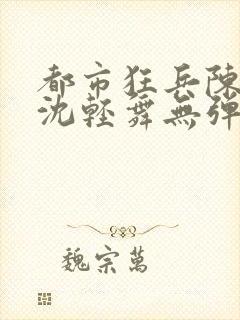 都市狂兵陳
沈輕舞無彈
魏宗萬